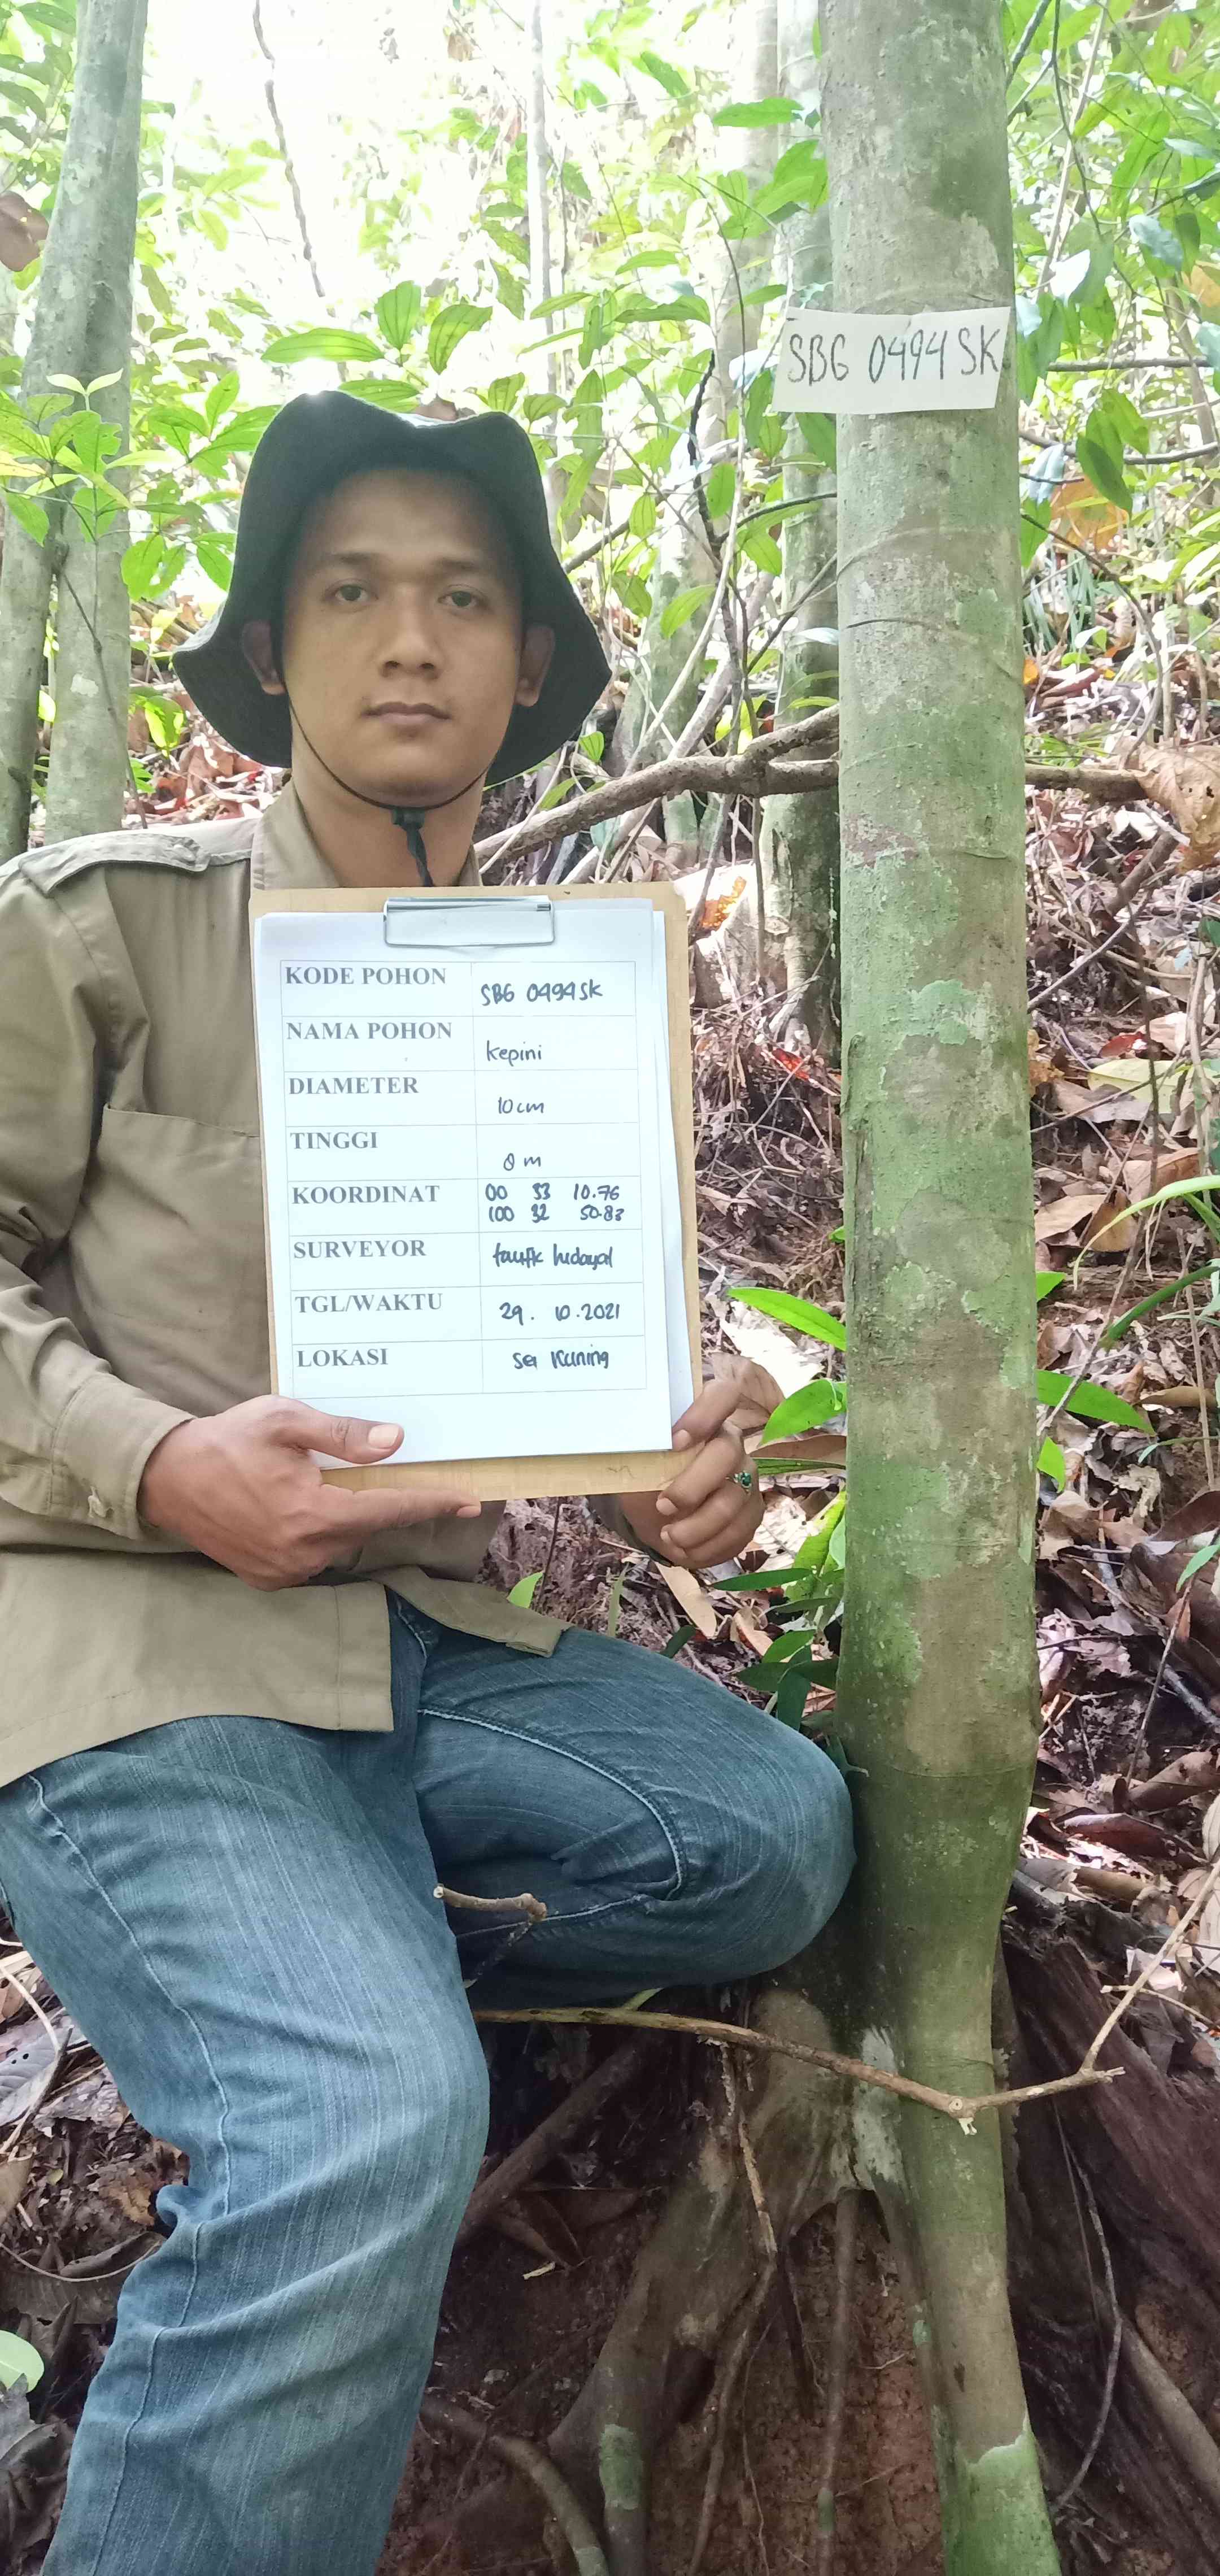 SBG 0494 SK
KODE POHON SBG 0494 SK
NAMA POHON kepini
DIAMETER 10 cm
TINGGI 8 m
KOORDINAT 00 53 10.76
100 32 50.83
SURVEYOR taufik hidayat
TGL/WAKTU 29. 10.2021
LOKASI sei kuning